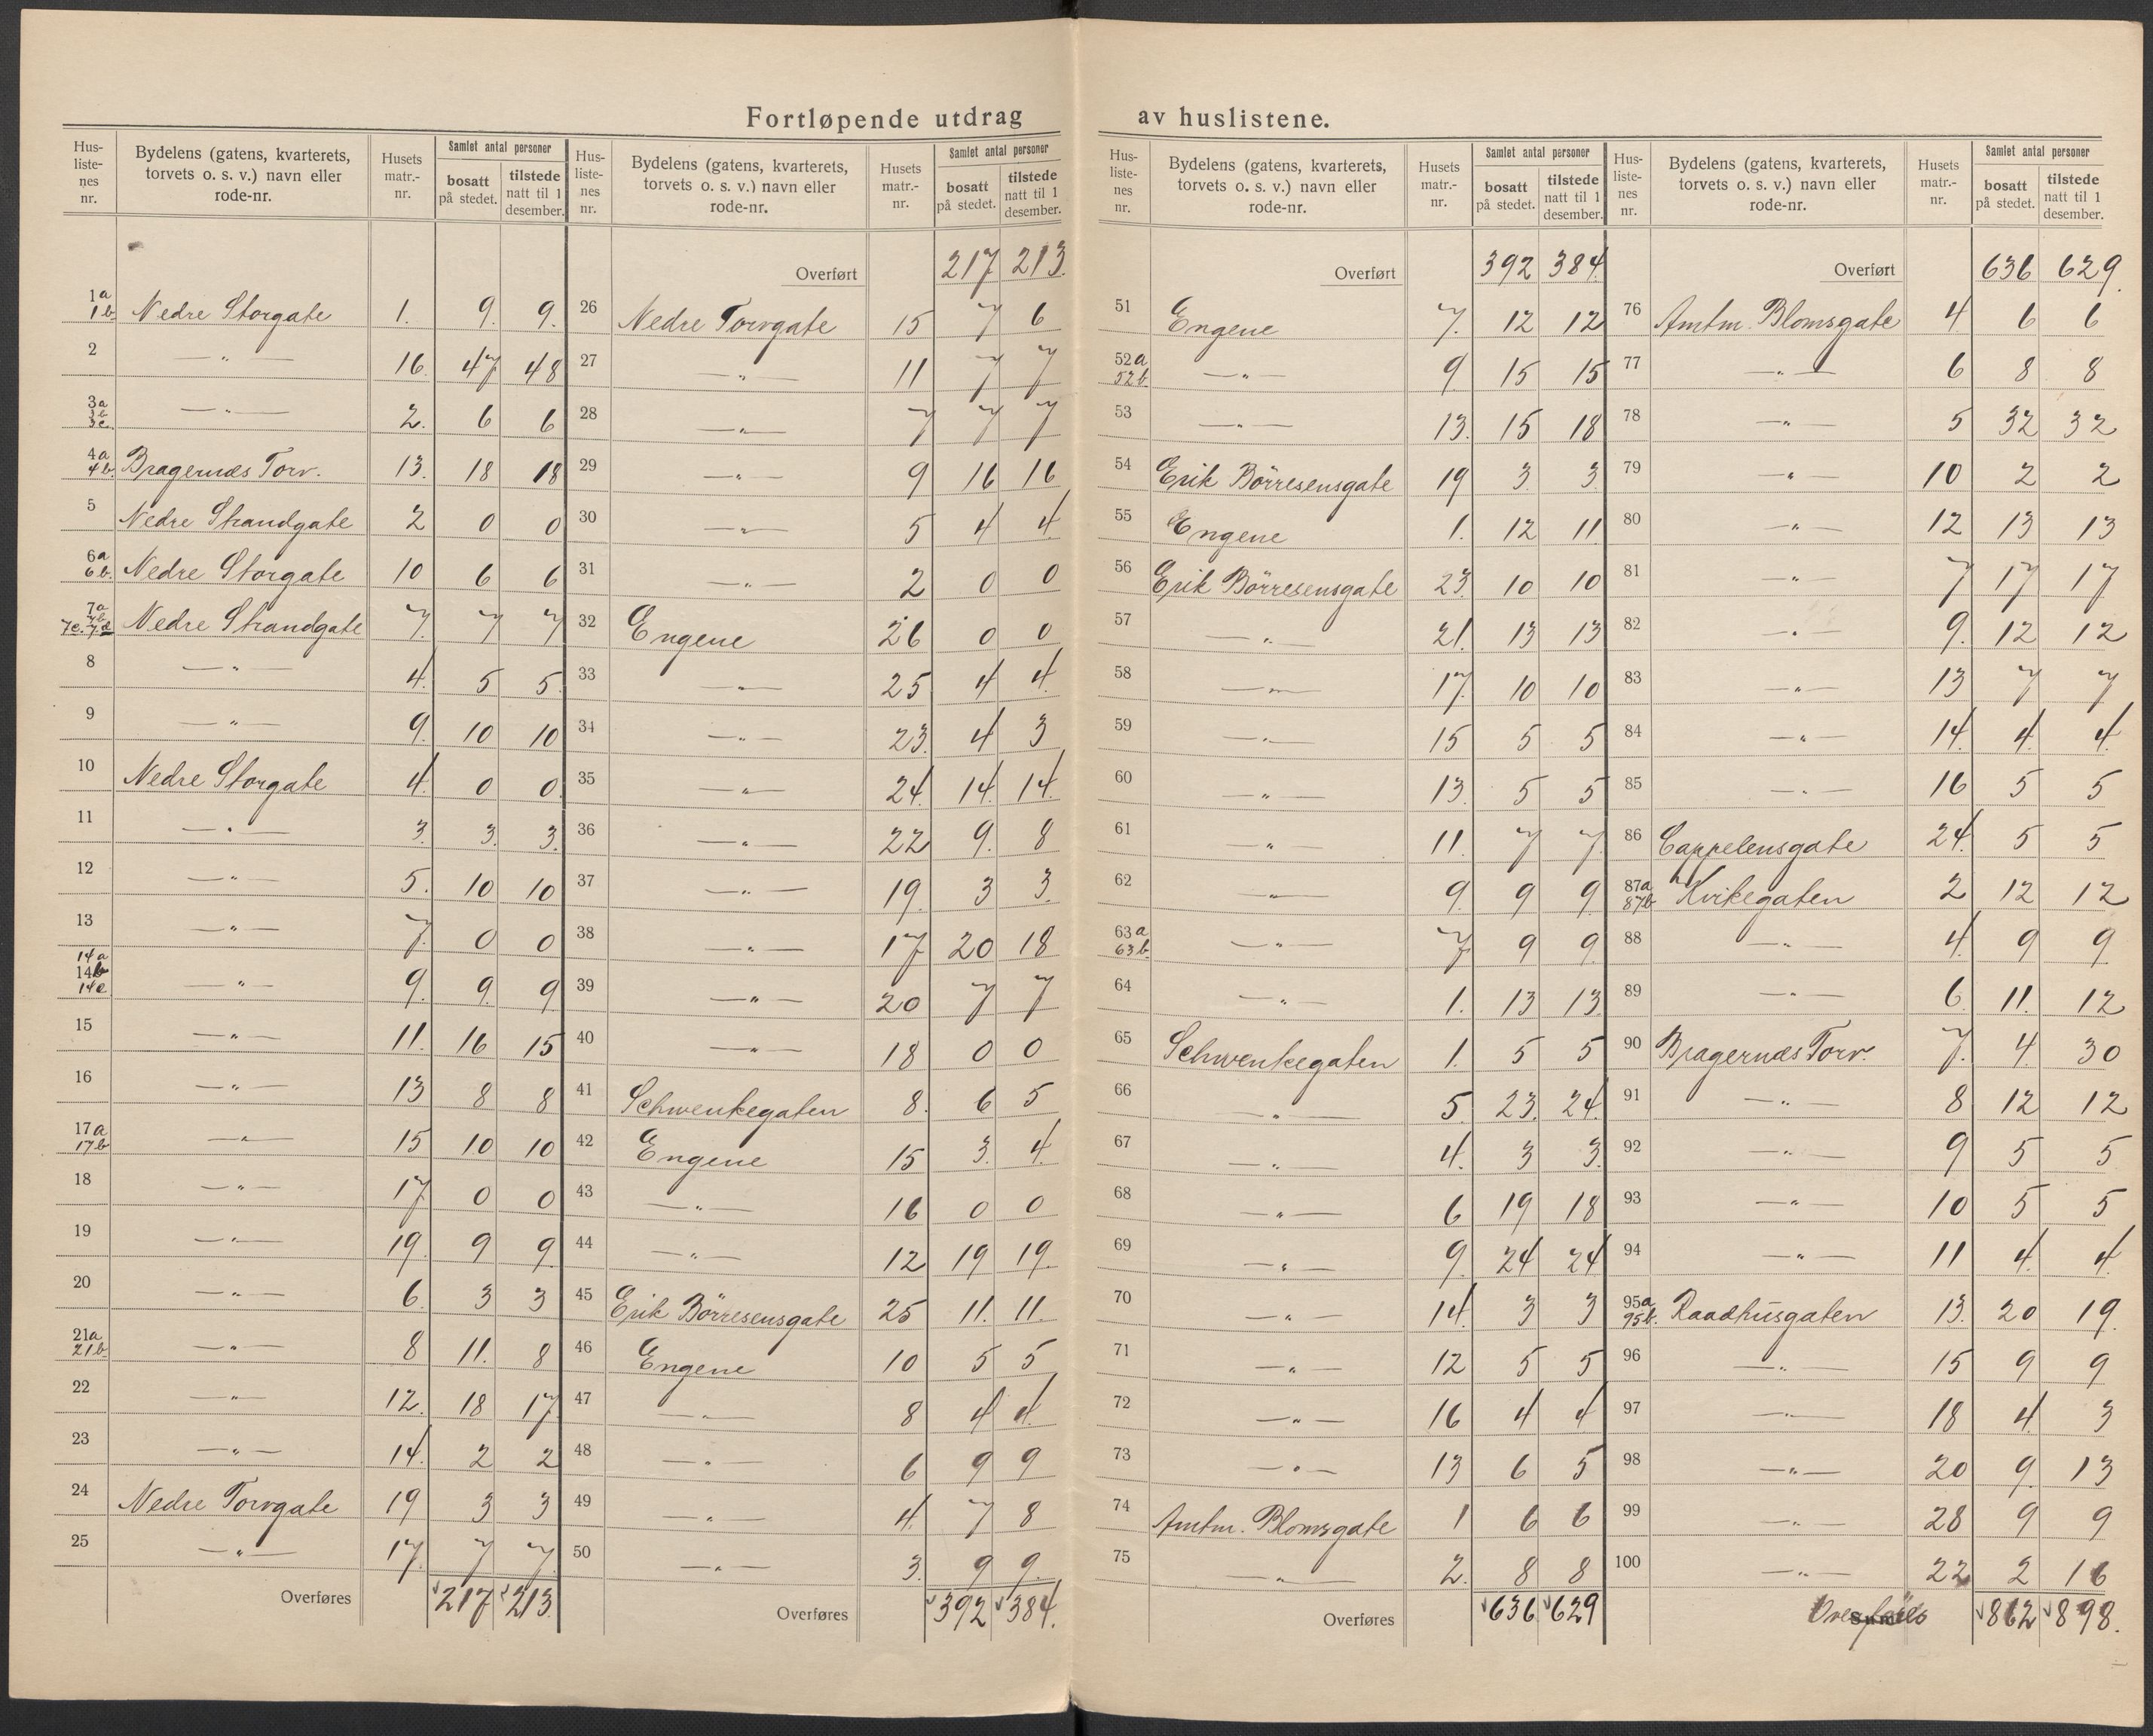 Fortløpende utdrag av huslistene.
Hus-liste-nes nr. | Bydelens (gatens, kvarterets, torvets o. s. v.) navn eller rode-nr. | Husets matr.-nr. | Samlet antal personer bosatt på stedet. | tilstede natt til 1 desember.
1a 1b | Nedre Storgate | 1. | 9. | 9.
2 | —"— | 16. | 47 | 48
3a 3b 3c. | —"— | 2. | 6 | 6
4a 4b | Bragernæs Torv. | 13. | 18 | 18
5 | Nedre Strandgate | 2 | 0 | 0
6a 6b. | Nedre Storgate | 10 | 6 | 6
7a 7b 7c. 7d | Nedre Strandgate | 7. | 7 | 7
8 | —"— | 4. | 5 | 5.
9 | —"— | 9. | 10 | 10
10 | Nedre Storgate | 4. | 0 | 0.
11 | —"— | 3. | 3. | 3.
12 | —"— | 5. | 10 | 10
13 | —"— | 7. | 0 | 0
14a 14b 14c | —"— | 9. | 9. | 9
15 | —"— | 11. | 16 | 15
16 | —"— | 13 | 8 | 8
17a 17b | —"— | 15 | 10 | 10
18 | —"— | 17 | 0 | 0
19 | —"— | 19. | 9 | 9.
20 | —"— | 6. | 3 | 3
21a 21b. | —"— | 8 | 11. | 8
22 | —"— | 12. | 18 | 17
23 | —"— | 14. | 2 | 2
24 | Nedre Torvgate | 19 | 3 | 3
25 | —"— | 17. | 7 | 7.
Overføres | 217 | 213.
Hus-liste-nes nr. | Bydelens (gatens, kvarterets, torvets o. s. v.) navn eller rode-nr. | Husets matr.-nr. | Samlet antal personer bosatt på stedet. | tilstede natt til 1 desember.
Overført | 217 | 213.
26 | Nedre Torvgate | 15 | 7 | 6
27 | —"— | 11 | 7 | 7
28 | —"— | 7 | 7 | 7
29 | —"— | 9 | 16 | 16
30 | —"— | 5 | 4 | 4
31 | —"— | 2 | 0 | 0
32 | Engene | 26 | 0 | 0
33 | —"— | 25 | 4 | 4
34 | —"— | 23. | 4 | 3
35 | —"— | 24 | 14. | 14.
36 | —"— | 22 | 9. | 8
37 | —"— | 19. | 3 | 3.
38 | —"— | 17 | 20 | 18
39 | —"— | 20 | 7 | 7
40 | —"— | 18 | 0 | 0
41 | Schwenkegaten | 8. | 6 | 5
42 | Engene | 15 | 3. | 4.
43 | —"— | 16 | 0 | 0
44 | —"— | 12 | 19 | 19.
45 | Erik Börresensgate | 25 | 11. | 11.
46 | Engene | 10 | 5 | 5
47 | —"— | 8 | 4 | 4.
48 | —"— | 6 | 9 | 9
49 | —"— | 4. | 7 | 8
50 | —"— | 3. | 9 | 9.
Overføres | 392 | 384.
Hus-liste-nes nr. | Bydelens (gatens, kvarterets, torvets o. s. v.) navn eller rode-nr. | Husets matr.-nr. | Samlet antal personer bosatt på stedet. | tilstede natt til 1 desember.
Overført | 392 | 384.
51 | Engene | 7. | 12 | 12
52a 52b. | —"— | 9 | 15 | 15
53 | —"— | 13. | 15 | 18
54 | Erik Börresensgate | 19 | 3. | 3.
55 | Engene | 1. | 12 | 11.
56 | Erik Börresensgate | 23. | 10 | 10
57 | —"— | 21. | 13 | 13
58 | —"— | 17. | 10 | 10
59 | —"— | 15 | 5 | 5
60 | —"— | 13. | 5 | 5
61 | —"— | 11. | 7 | 7.
62 | —"— | 9. | 9 | 9
63a 63b. | —"— | 7. | 9 | 9.
64 | —"— | 1. | 13 | 13.
65 | Schwenkegaten | 1. | 5 | 5
66 | —"— | 5. | 23. | 24.
67 | —"— | 4. | 3 | 3.
68 | —"— | 6 | 19 | 18
69 | —"— | 9. | 24 | 24
70 | —"— | 14. | 3 | 3
71 | —"— | 12 | 5 | 5
72 | —"— | 16 | 4 | 4
73 | —"— | 13 | 6 | 5
74 | Amtm. Blomsgate | 1 | 6 | 6
75 | —"— | 2. | 8 | 8
Overføres | 636 | 629
Hus-liste-nes nr. | Bydelens (gatens, kvarterets, torvets o. s. v.) navn eller rode-nr. | Husets matr.-nr. | Samlet antal personer bosatt på stedet. | tilstede natt til 1 desember.
Overført | 636 | 629.
76 | Amtm. Blomsgate | 4 | 6 | 6
77 | —"— | 6 | 8 | 8
78 | —"— | 5 | 32 | 32
79 | —"— | 10 | 2 | 2
80 | —"— | 12 | 13 | 13
81 | —"— | 7 | 17 | 17
82 | —"— | 9. | 12 | 12
83 | —"— | 13 | 7 | 7
84 | —"— | 14. | 4. | 4.
85 | —"— | 16 | 5 | 5
86 | Cappelensgate | 24. | 5 | 5
87a 87b | Kvikegaten | 2 | 12 | 12
88 | —"— | 4. | 9 | 9
89 | —"— | 6. | 11. | 12
90 | Bragernæs Torv. | 7. | 4. | 30
91 | —"— | 8 | 12 | 12
92 | —"— | 9 | 5 | 5
93 | —"— | 10 | 5 | 5
94 | —"— | 11 | 4. | 4.
95a 95b. | Raadhusgaten | 13. | 20 | 19.
96 | —"— | 15 | 9 | 9
97 | —"— | 18 | 4. | 3
98 | —"— | 20 | 9. | 13
99 | —"— | 28 | 9 | 9
100 | —"— | 22 | 2 | 16
Overføres | 862 | 898.